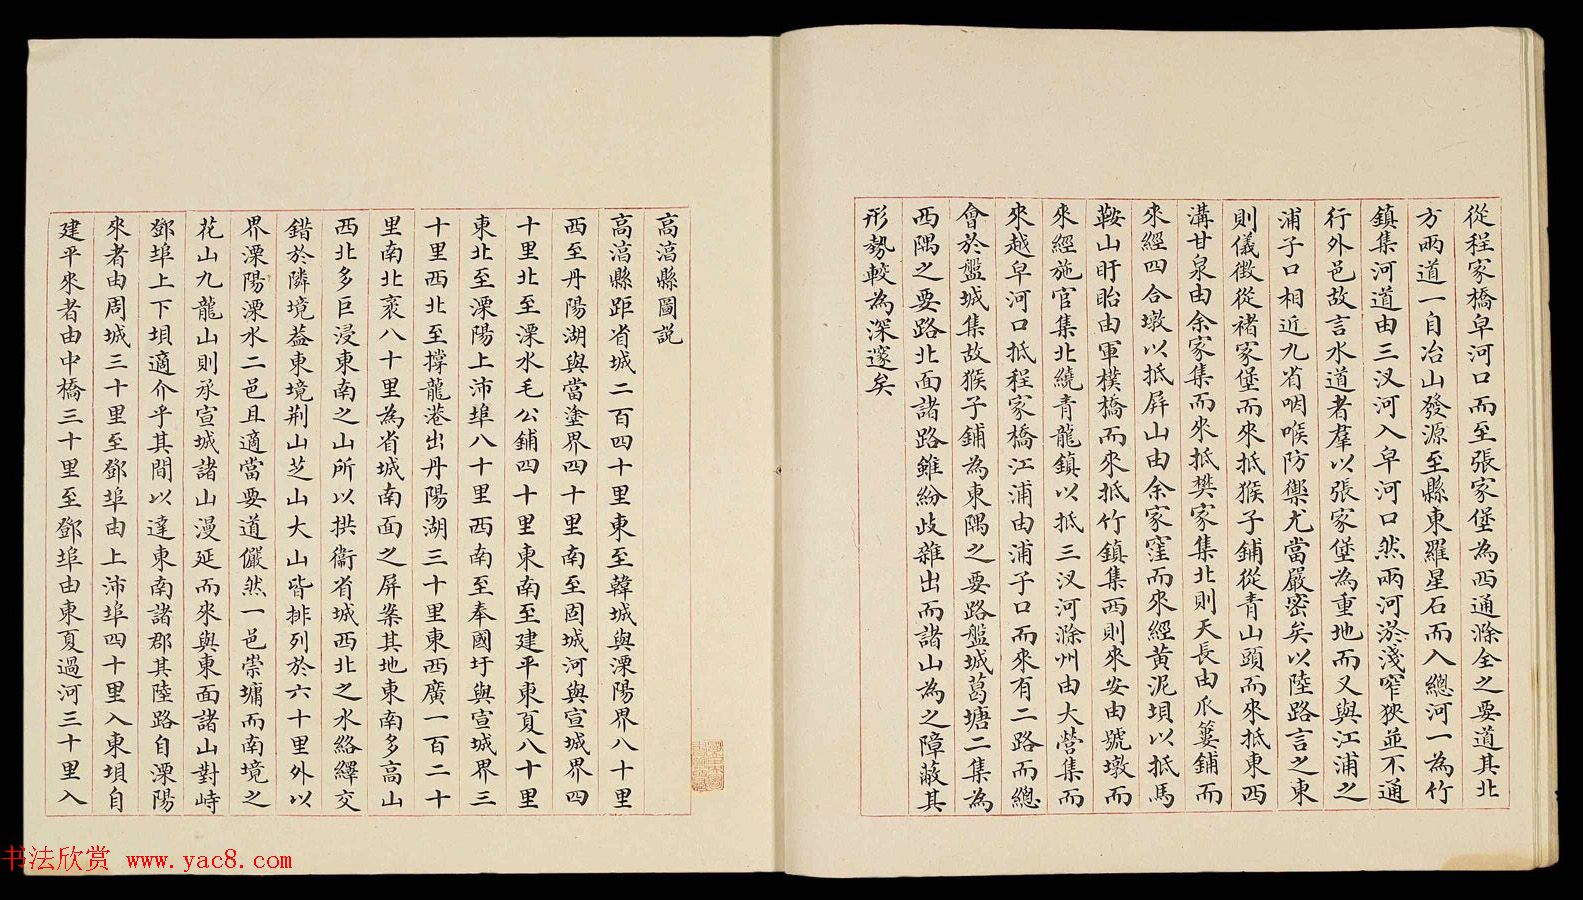 從程家橋皁河口而至張家堡為西通滁全之要道其北
方兩道一自冶山發源至縣東羅星石而入總河一為竹
鎮集河道由三汊河入皁河口然兩河淤淺窄狹並不通
行外邑故言水道者羣以張家堡為重地而又與江浦之
浦子口相近九省咽喉防禦尤當嚴密矣以陸路言之東
則儀徴從褚家堡而來抵猴子鋪從青山頭而來抵東西
溝甘泉由余家集而來抵樊家集北則天長由瓜蔞鋪而
來經四合墩以抵屏山由余家窪而來經黄泥埧以抵馬
鞍山盱眙由軍樸橋而來抵竹鎮集西則來安由號墩而
來經施官集北繞青龍鎮以抵三汊河滁州由大營集而
來越皁河口抵程家橋江浦由浦子口而來有二路而總
會於盤城集故猴子鋪為東隅之要路盤城葛塘二集為
西隅之要路北面諸路雖紛歧雜出而諸山為之障蔽其
形勢較為深邃矣
高淳縣圖説
高淳縣距省城二百四十里東至韓城與溧陽界八十里
西至丹陽湖與當塗界四十里南至固城河與宣城界四
十里北至溧水毛公鋪四十里東南至建平東夏八十里
東北至溧陽上沛埠八十里西南至奉國圩與宣城界三
十里西北至撐龍港出丹陽湖三十里東西廣一百二十
里南北袤八十里為省城南面之屏案其地東南多高山
西北多巨浸東南之山所以拱衞省城西北之水絡繹交
錯於隣境葢東境荆山芝山大山皆排列於六十里外以
界溧陽溧水二邑且適當要道儼然一邑崇墉而南境之
花山九龍山則承宣城諸山漫延而來與東面諸山對峙
鄧埠上下埧適介乎其間以達東南諸郡其陸路自溧陽
來者由周城三十里至鄧埠由上沛埠四十里入東埧自
建平來者由中橋三十里至鄧埠由東夏過河三十里入
书法欣赏 www.yac8.com